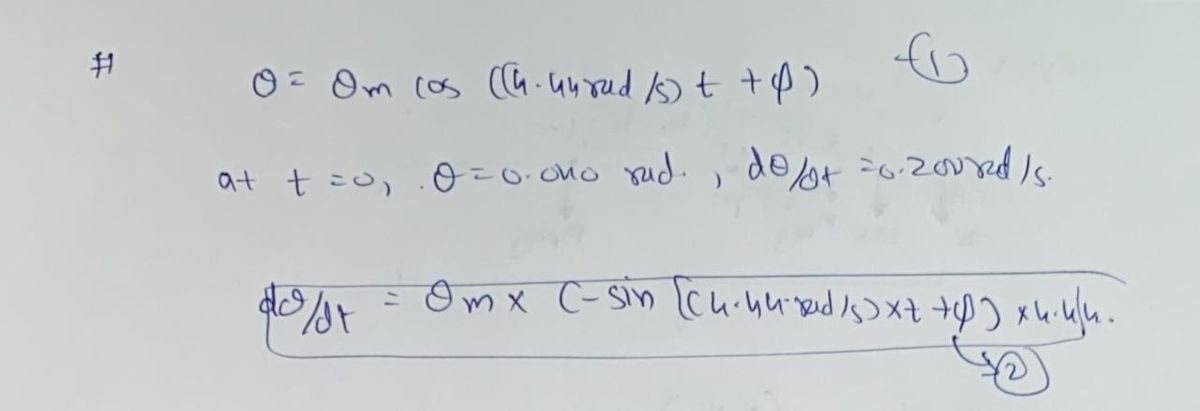 # θ = θm cos ((4.44 rad/s) t + φ) -(1)
at t=0, θ=0.040 rad., dθ/dt =0.200 rad/s.
dθ/dt = θm x (-sin [(4.44 rad/s)xt +φ) x4.44.
(2)